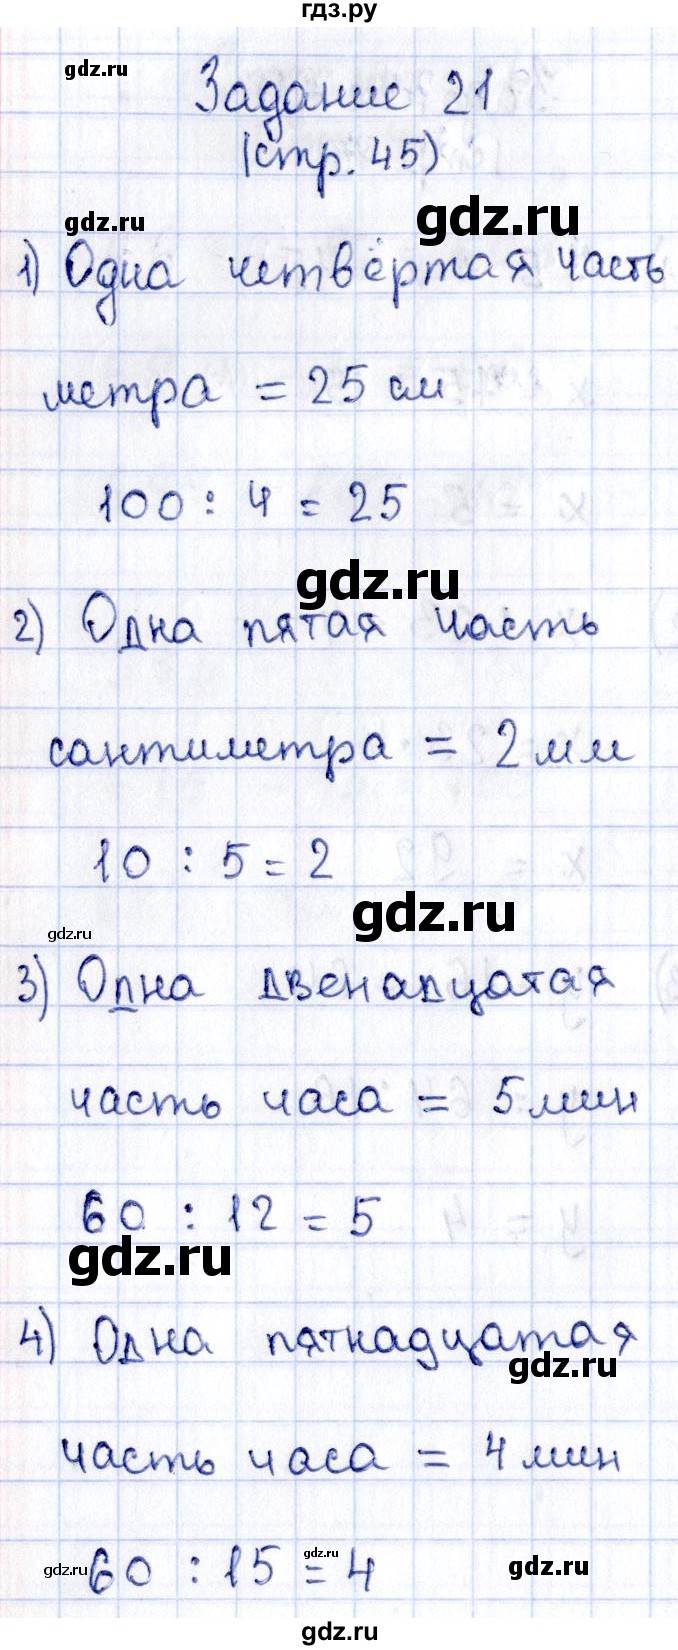 гдз.ру
gdz.ru
Задание 21
(стр. 45)
gdz.ru
gdz.ru
1) Одна четвёртая часть
метра = 25 см
100 : 4 = 25
gdz.ru
2) Одна пятая часть
сантиметра = 2 мм
10 : 5 = 2
gdz.ru
gdz.ru
3) Одна двенадцатая
часть часа = 5 мин
60 : 12 = 5
gdz.ru
4) Одна пятнадцатая
gdz.ru
часть часа = 4 мин
gdz.ru
gdz.ru
60 : 15 = 4
gdz.ru
gdz.ru